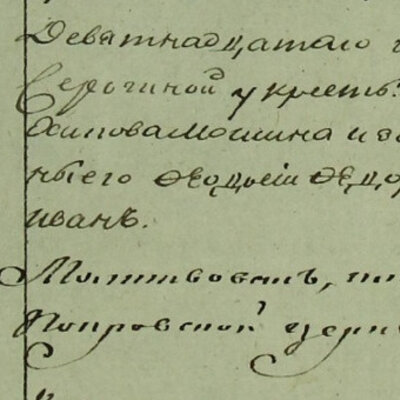 Девятнадцатаго
Серогиной у крестья
Осипова Мошина и за
ныего Ѳеодосіи Ѳедо
иванъ.
Молитвовалъ,
Покровской церк